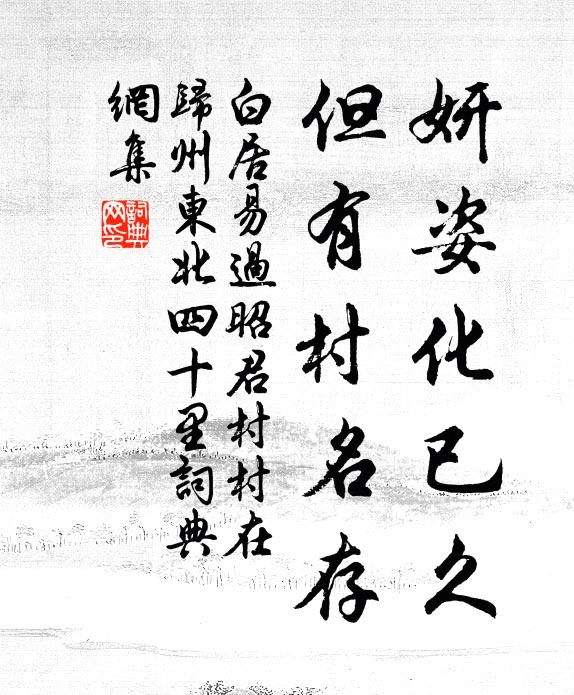 妍姿化已久
但有村名存
白居易過昭君村村在
歸州東北四十里詞典
網集
詞典網印